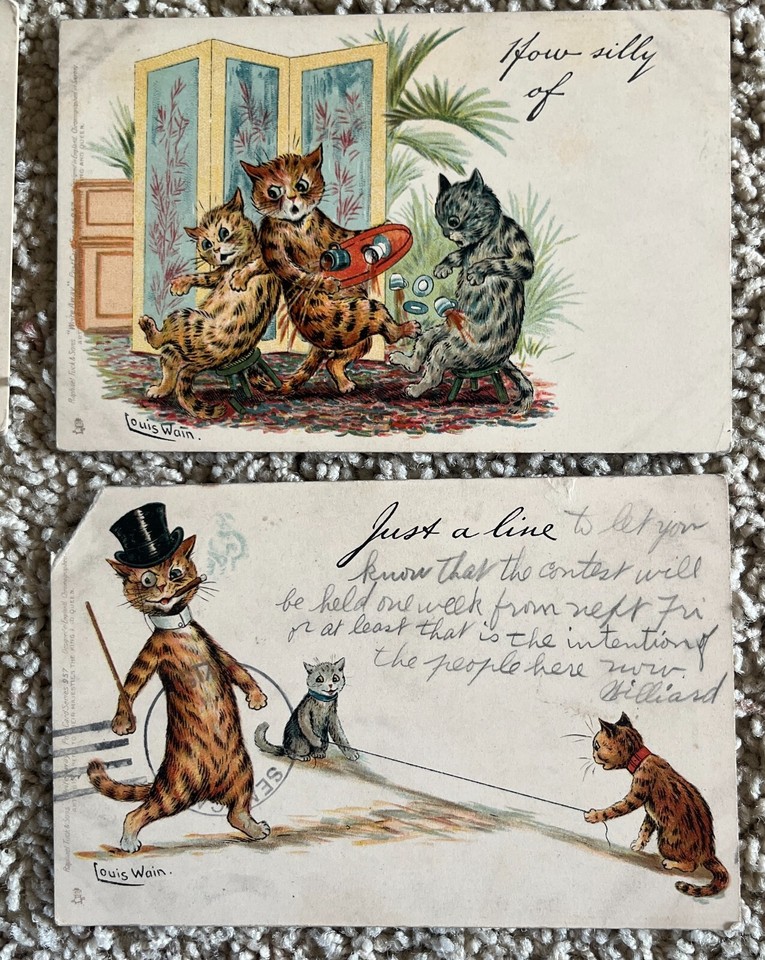 How silly
of
Louis Wain.
Just a line to let you
know that the contest will
be held one week from next Fri
or at least that is the intention of
the people here now.
Hilliard
Louis Wain.